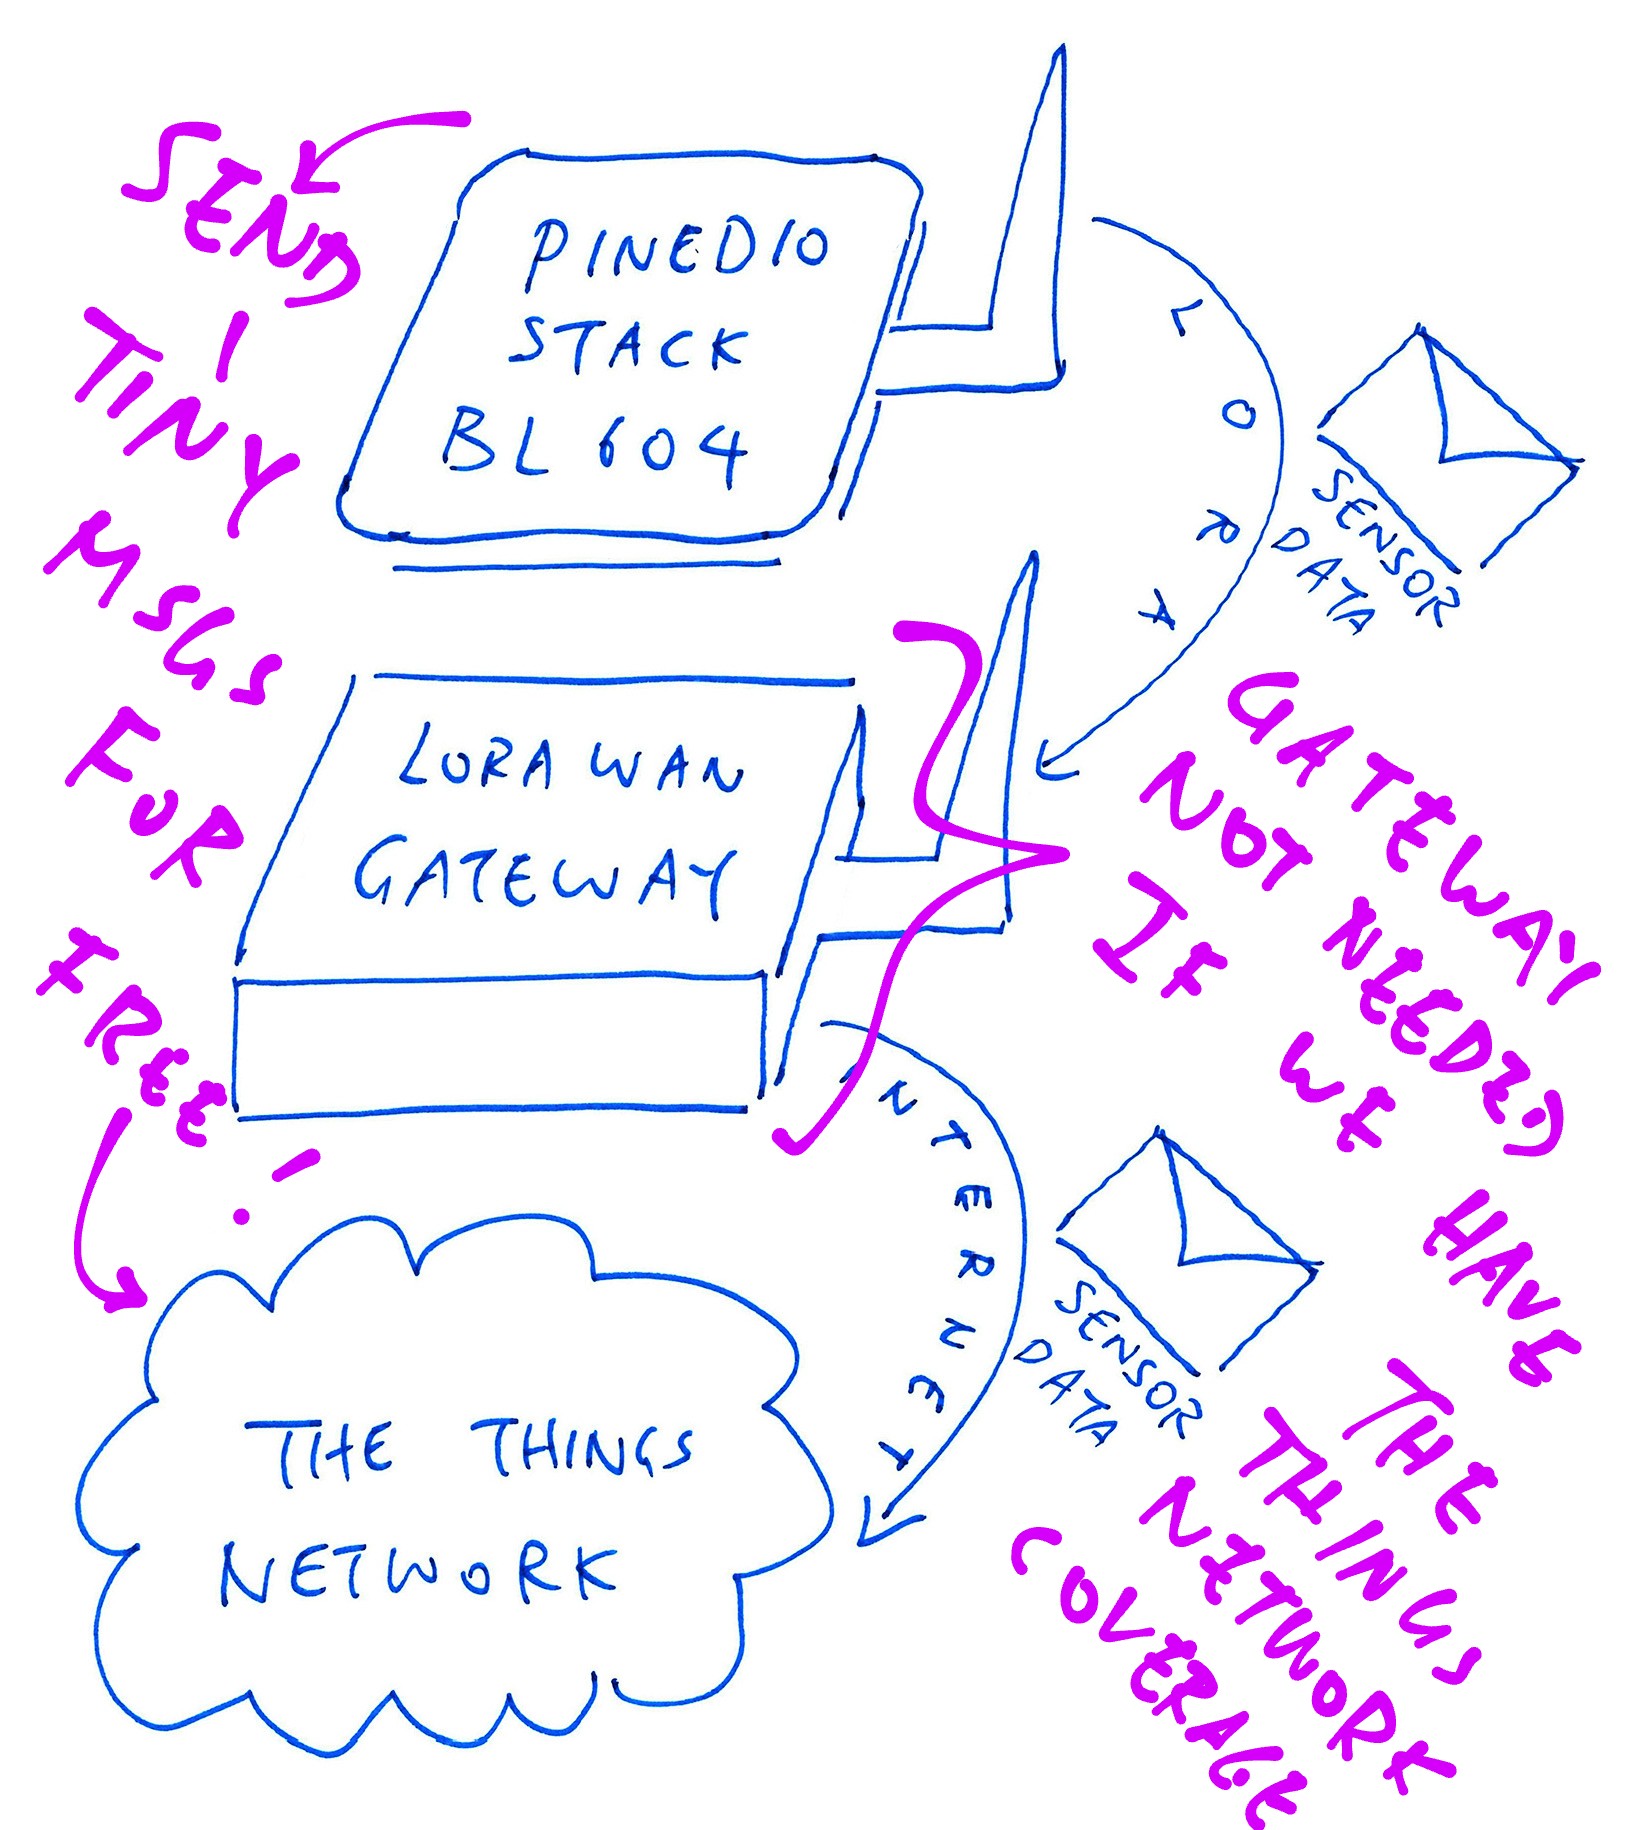 SEND
TINY
MSGS
FOR
FREE!
PINEDIO
STACK
BL604
LORA
SENSOR
DATA
LORAWAN
GATEWAY
GATEWAY
NOT NEEDED
IF WE HAVE
THE
THINGS
NETWORK
COVERAGE
:)
INTERNET
SENSOR
DATA
THE THINGS
NETWORK